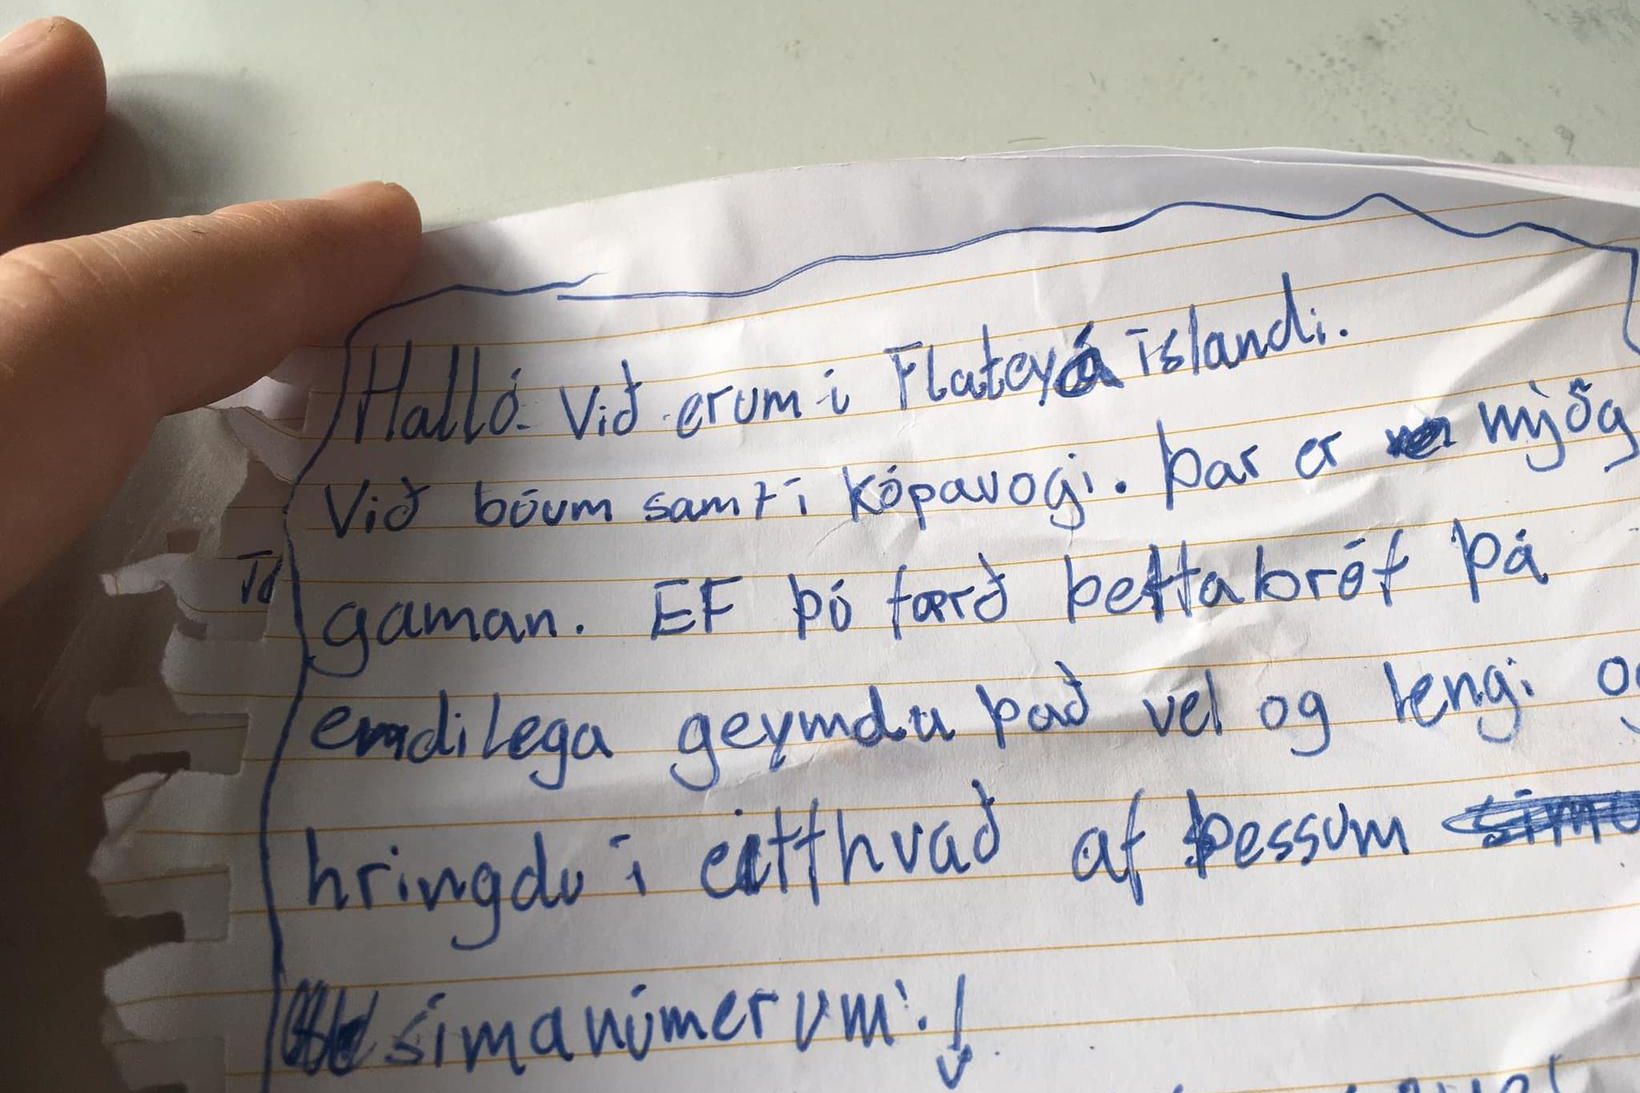 Halló. Við erum í Flatey á íslandi.
Við bóum samt í kópavogi. Þar er mjög
gaman. EF þú færð þetta bréf þá
endilega geymdu það vel og lengi og
hringdu í eitthvað af þessum
símanúmerum: